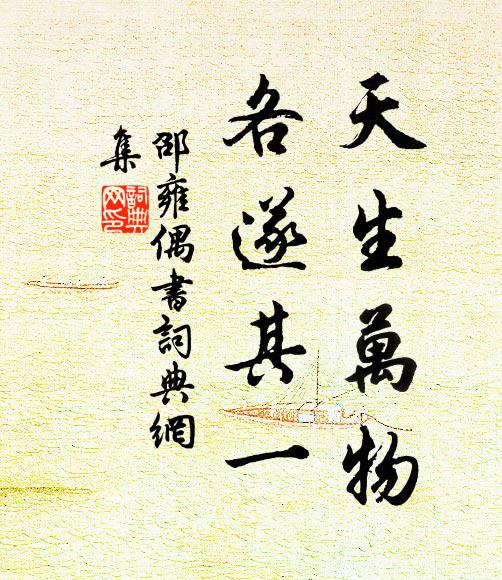 天生萬物
各遂其一
邵雍偶書詞典網
集
詞典
网印